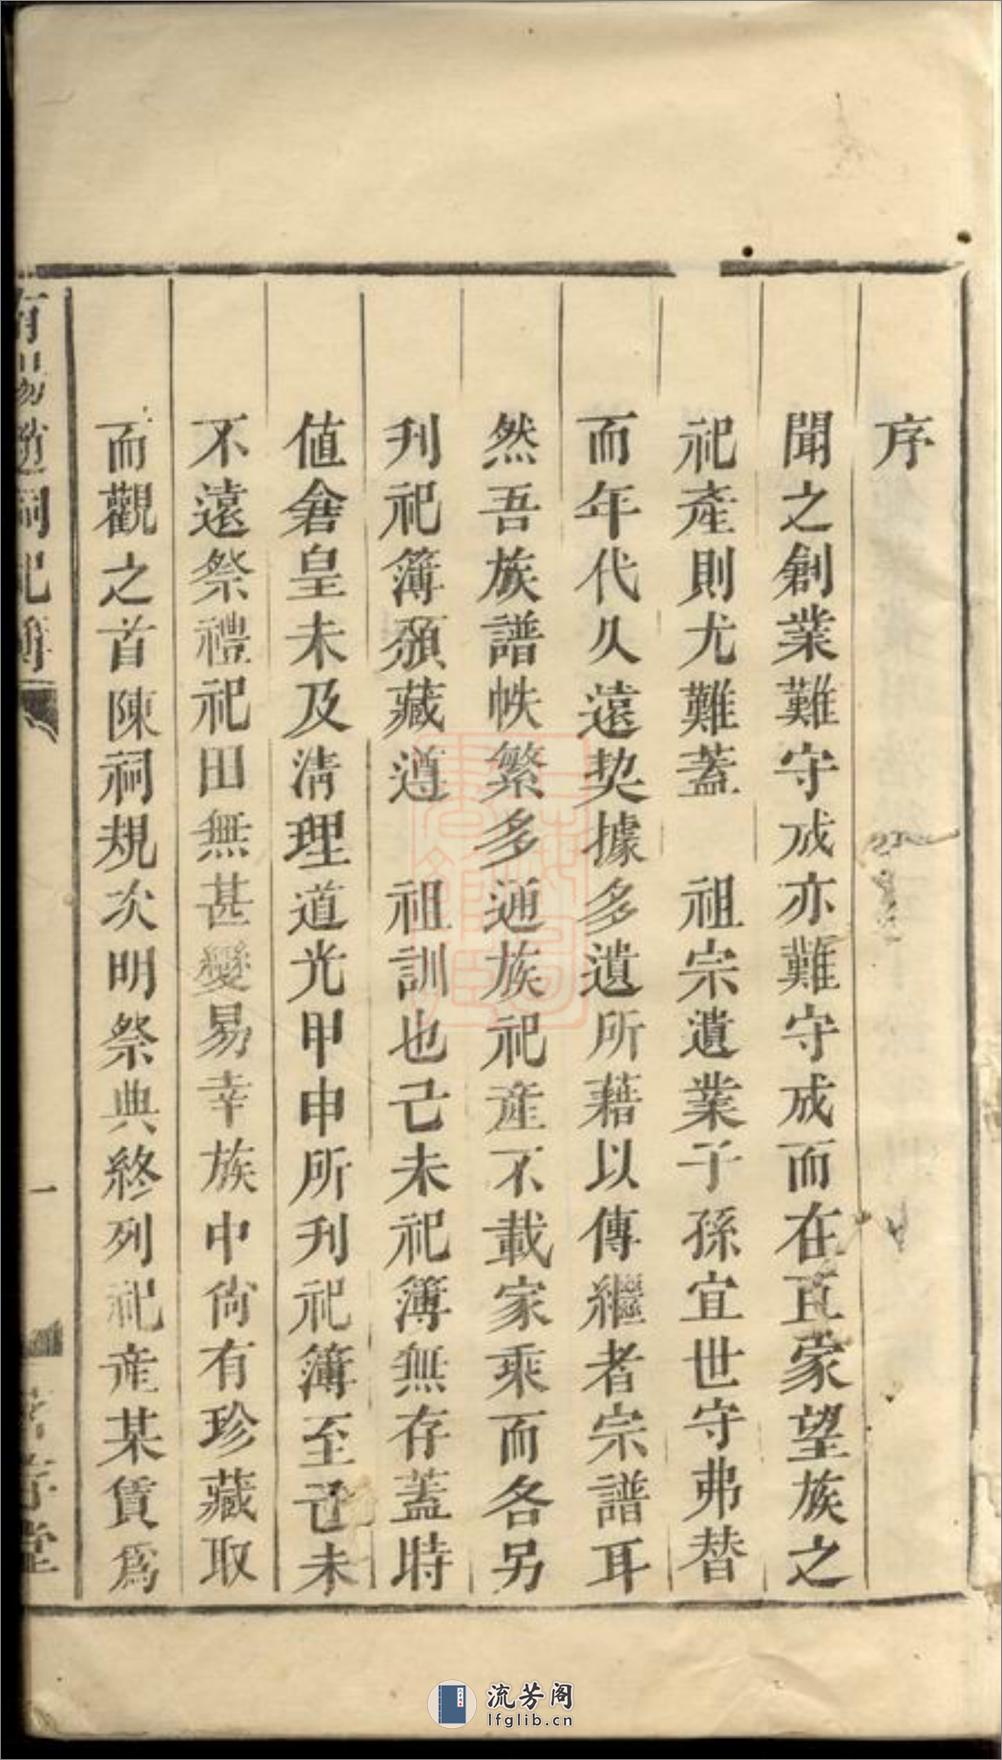 序
聞之創業難守成亦難守成而在巨家望族之
祀產則尤難蓋　祖宗遺業子孫宜世守弗替
而年代久遠契據多遺所藉以傳繼者宗譜耳
然吾族譜帙繁多通族祀產不載家乘而各另
刋祀簿頒藏遵　祖訓也己未祀簿無存蓋時
值倉皇未及清理道光甲申所刋祀簿至己未
不遠祭禮祀田無甚變易幸族中尙有珍藏取
而觀之首陳祠規次明祭典終列祀產某賃爲
趙祠祀簿
一
堂
流芳阁
lfglib.cn